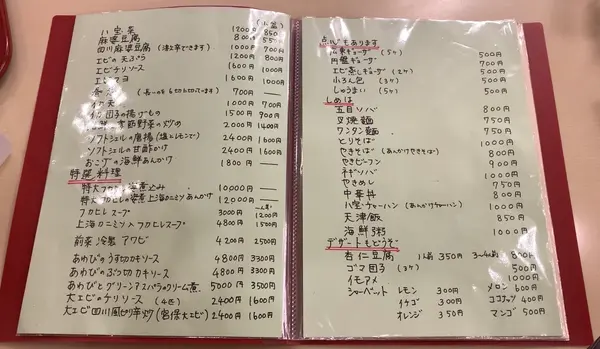 (小盆)
八宝菜 1200円 850
麻婆豆腐 800円 550
四川麻婆豆腐 (激辛できます) 1000円 700
エビの天ぷら 1200円 800円
エビチリソース 1600円 1000円
エビマヨ 1600円 1000円
春巻 700円 ―
イカ天 1000円 700円
団子の揚げもの 1000円 700円
海鮮と季節野菜の炒め 2000円 1400円
ソフトシェルの唐揚 (塩とレモンで) 2400円 1600円
ソフトシェルの甘酢かけ 2400円 1600円
おこゲの海鮮あんかけ 1800円 ―
特尾料理
特大フカヒレ姿煮込み 10000円 ―
特大フカヒレの姿煮 上海カニミソあんかけ 12000円 ―
フカヒレスープ 3000円 1200円
上海カニミソ入フカヒレスープ 4800円 1500円
前菜冷製アワビ 4200円 2500円
あわびのうす切カキソース 4800円 3300円
あわびのぶつ切カキソース 4800円 3300円
あわびとグリーンアスパラのクリーム煮 5000円 3500円
大エビのチリソース (4匹) 2400円 1600円
大エビ四川風ピリ辛炒 (宮保大エビ) 2400円 1600円
点心もあります
広東ギョーザ (5ケ) 500円
円盤ギョーザ 500円
エビ蒸しギョーザ (2ケ) 500円
小ろん包 (3ケ) 500円
しゅうまい (5ケ) 500円
しめは
五目ソバ 800円
叉焼麺 750円
ワンタン麺 750円
とりそば 1000円
やきそば (あんかけやきそば) 800円
やきビーフン 900円
ネギソバ 1000円
やきめし 750円
中華丼 800円
八宝チャーハン (あんかけチャーハン) 1000円
天津飯 850円
海鮮粥 1000円
デザートもどうぞ
杏仁豆腐 1人前 350円 3〜4人前 800円
ゴマ団子 (3ケ) 500円
イモアメ 1000円
シャーベット レモン 300円 メロン 600円
イチゴ 300円 ココナッツ 400円
オレンジ 350円 マンゴ 500円